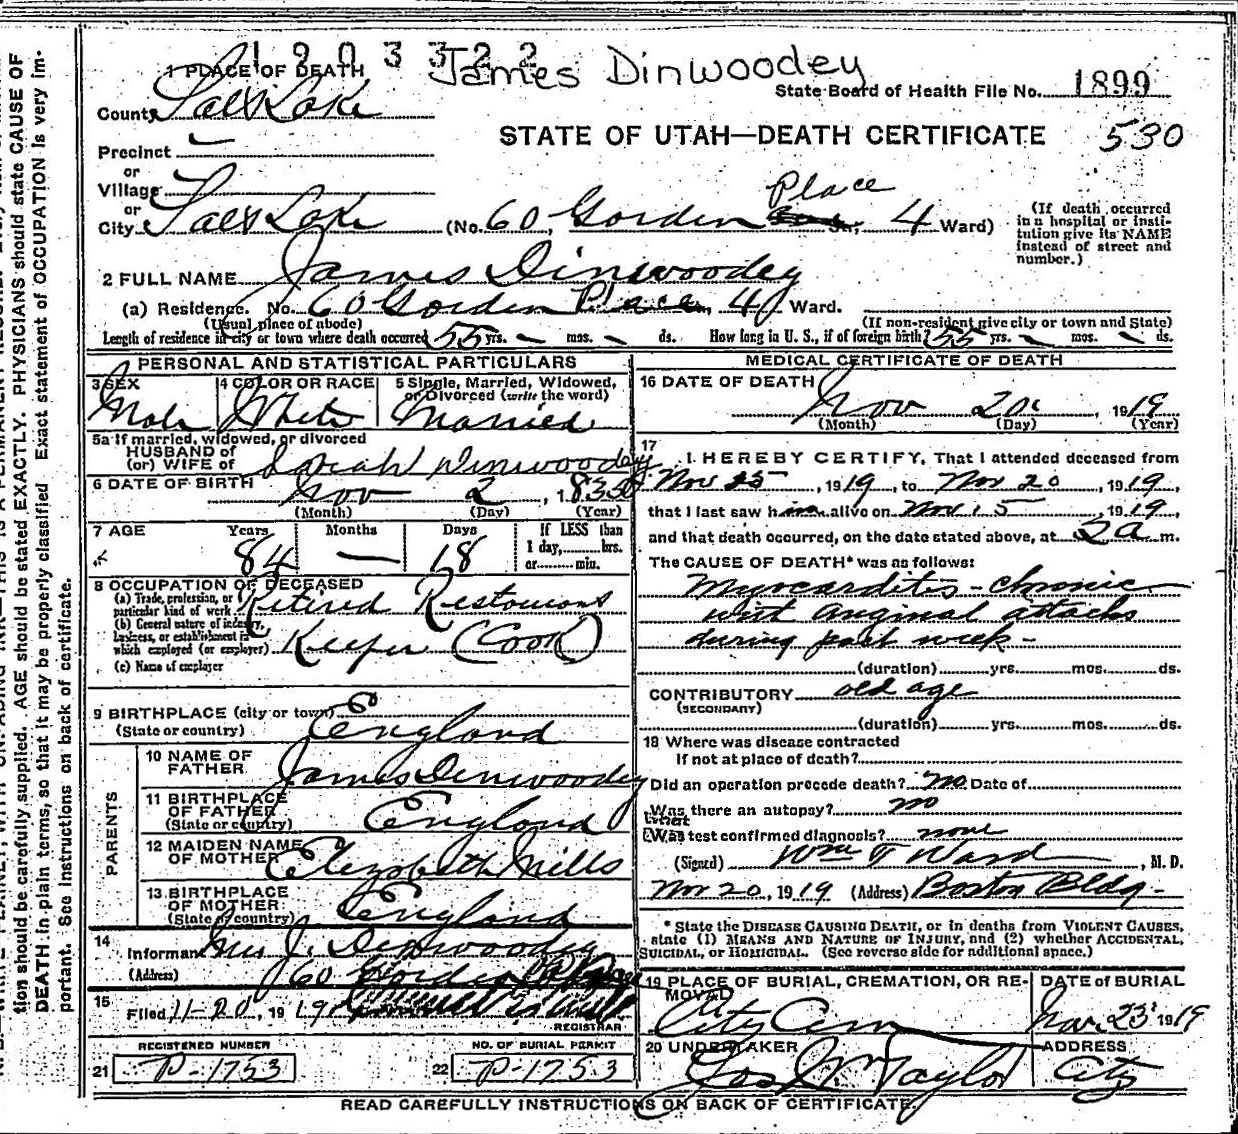 1203322
James Dinwoodey
1 PLACE OF DEATH
State Board of Health File No. 1899
County Salt Lake
STATE OF UTAH—DEATH CERTIFICATE 530
Precinct
or
Village
or
City Salt Lake (No. 60, Gorden Place St., 4 Ward)
(If death occurred in a hospital or institution give its NAME instead of street and number.)
2 FULL NAME James Dinwoodey
(a) Residence. No. 60 Gorden Place, 4 Ward.
(Usual place of abode) (If non-resident give city or town and State)
Length of residence in city or town where death occurred 55 yrs. — mos. — ds. How long in U. S., if of foreign birth? 55 yrs. — mos. — ds.
PERSONAL AND STATISTICAL PARTICULARS
3 SEX Male
4 COLOR OR RACE White
5 Single, Married, Widowed, or Divorced (write the word) Married
5a If married, widowed, or divorced
HUSBAND of
(or) WIFE of Sarah Dinwoodey
6 DATE OF BIRTH Nov 2, 1835
(Month) (Day) (Year)
7 AGE Years Months Days If LESS than
84 — 18 1 day, ......hrs.
or......min.
8 OCCUPATION OF DECEASED
(a) Trade, profession, or particular kind of work Retired Restaurant
(b) General nature of industry, business, or establishment in which employed (or employer) Keeper (Cook)
(c) Name of employer
9 BIRTHPLACE (city or town)
(State or country) England
PARENTS
10 NAME OF FATHER James Dinwoodey
11 BIRTHPLACE OF FATHER (State or country) England
12 MAIDEN NAME OF MOTHER Elizabeth Mills
13 BIRTHPLACE OF MOTHER (State or country) England
14 Informant Mrs J. Dinwoodey
(Address) 60 Gorden Place
15 Filed 11-20, 1919
REGISTRAR
REGISTERED NUMBER
21 P-1753
NO. OF BURIAL PERMIT
22 P-1753
MEDICAL CERTIFICATE OF DEATH
16 DATE OF DEATH Nov 20, 1919
(Month) (Day) (Year)
17
I HEREBY CERTIFY, That I attended deceased from
Nov 15, 1919, to Nov 20, 1919,
that I last saw him alive on Nov 15, 1919,
and that death occurred, on the date stated above, at 2a m.
The CAUSE OF DEATH* was as follows:
Myocarditis - chronic
with anginal attacks
during past week -
(duration) yrs. mos. ds.
CONTRIBUTORY old age
(SECONDARY)
(duration) yrs. mos. ds.
18 Where was disease contracted
If not at place of death?
Did an operation precede death? no Date of
Was there an autopsy? no
What test confirmed diagnosis? none
(Signed) Wm T Ward, M. D.
Nov 20, 1919 (Address) Boston Bldg-
* State the DISEASE CAUSING DEATH, or in deaths from VIOLENT CAUSES,
state (1) MEANS AND NATURE OF INJURY, and (2) whether ACCIDENTAL,
SUICIDAL, or HOMICIDAL. (See reverse side for additional space.)
19 PLACE OF BURIAL, CREMATION, OR REMOVAL City Cem
DATE of BURIAL Nov 23 1919
20 UNDERTAKER Jos Wm Taylor
ADDRESS City
READ CAREFULLY INSTRUCTIONS ON BACK OF CERTIFICATE.
tion should be carefully supplied. AGE should be stated EXACTLY. PHYSICIANS should state CAUSE OF
DEATH in plain terms, so that it may be properly classified Exact statement of OCCUPATION is very im-
portant. See instructions on back of certificate.